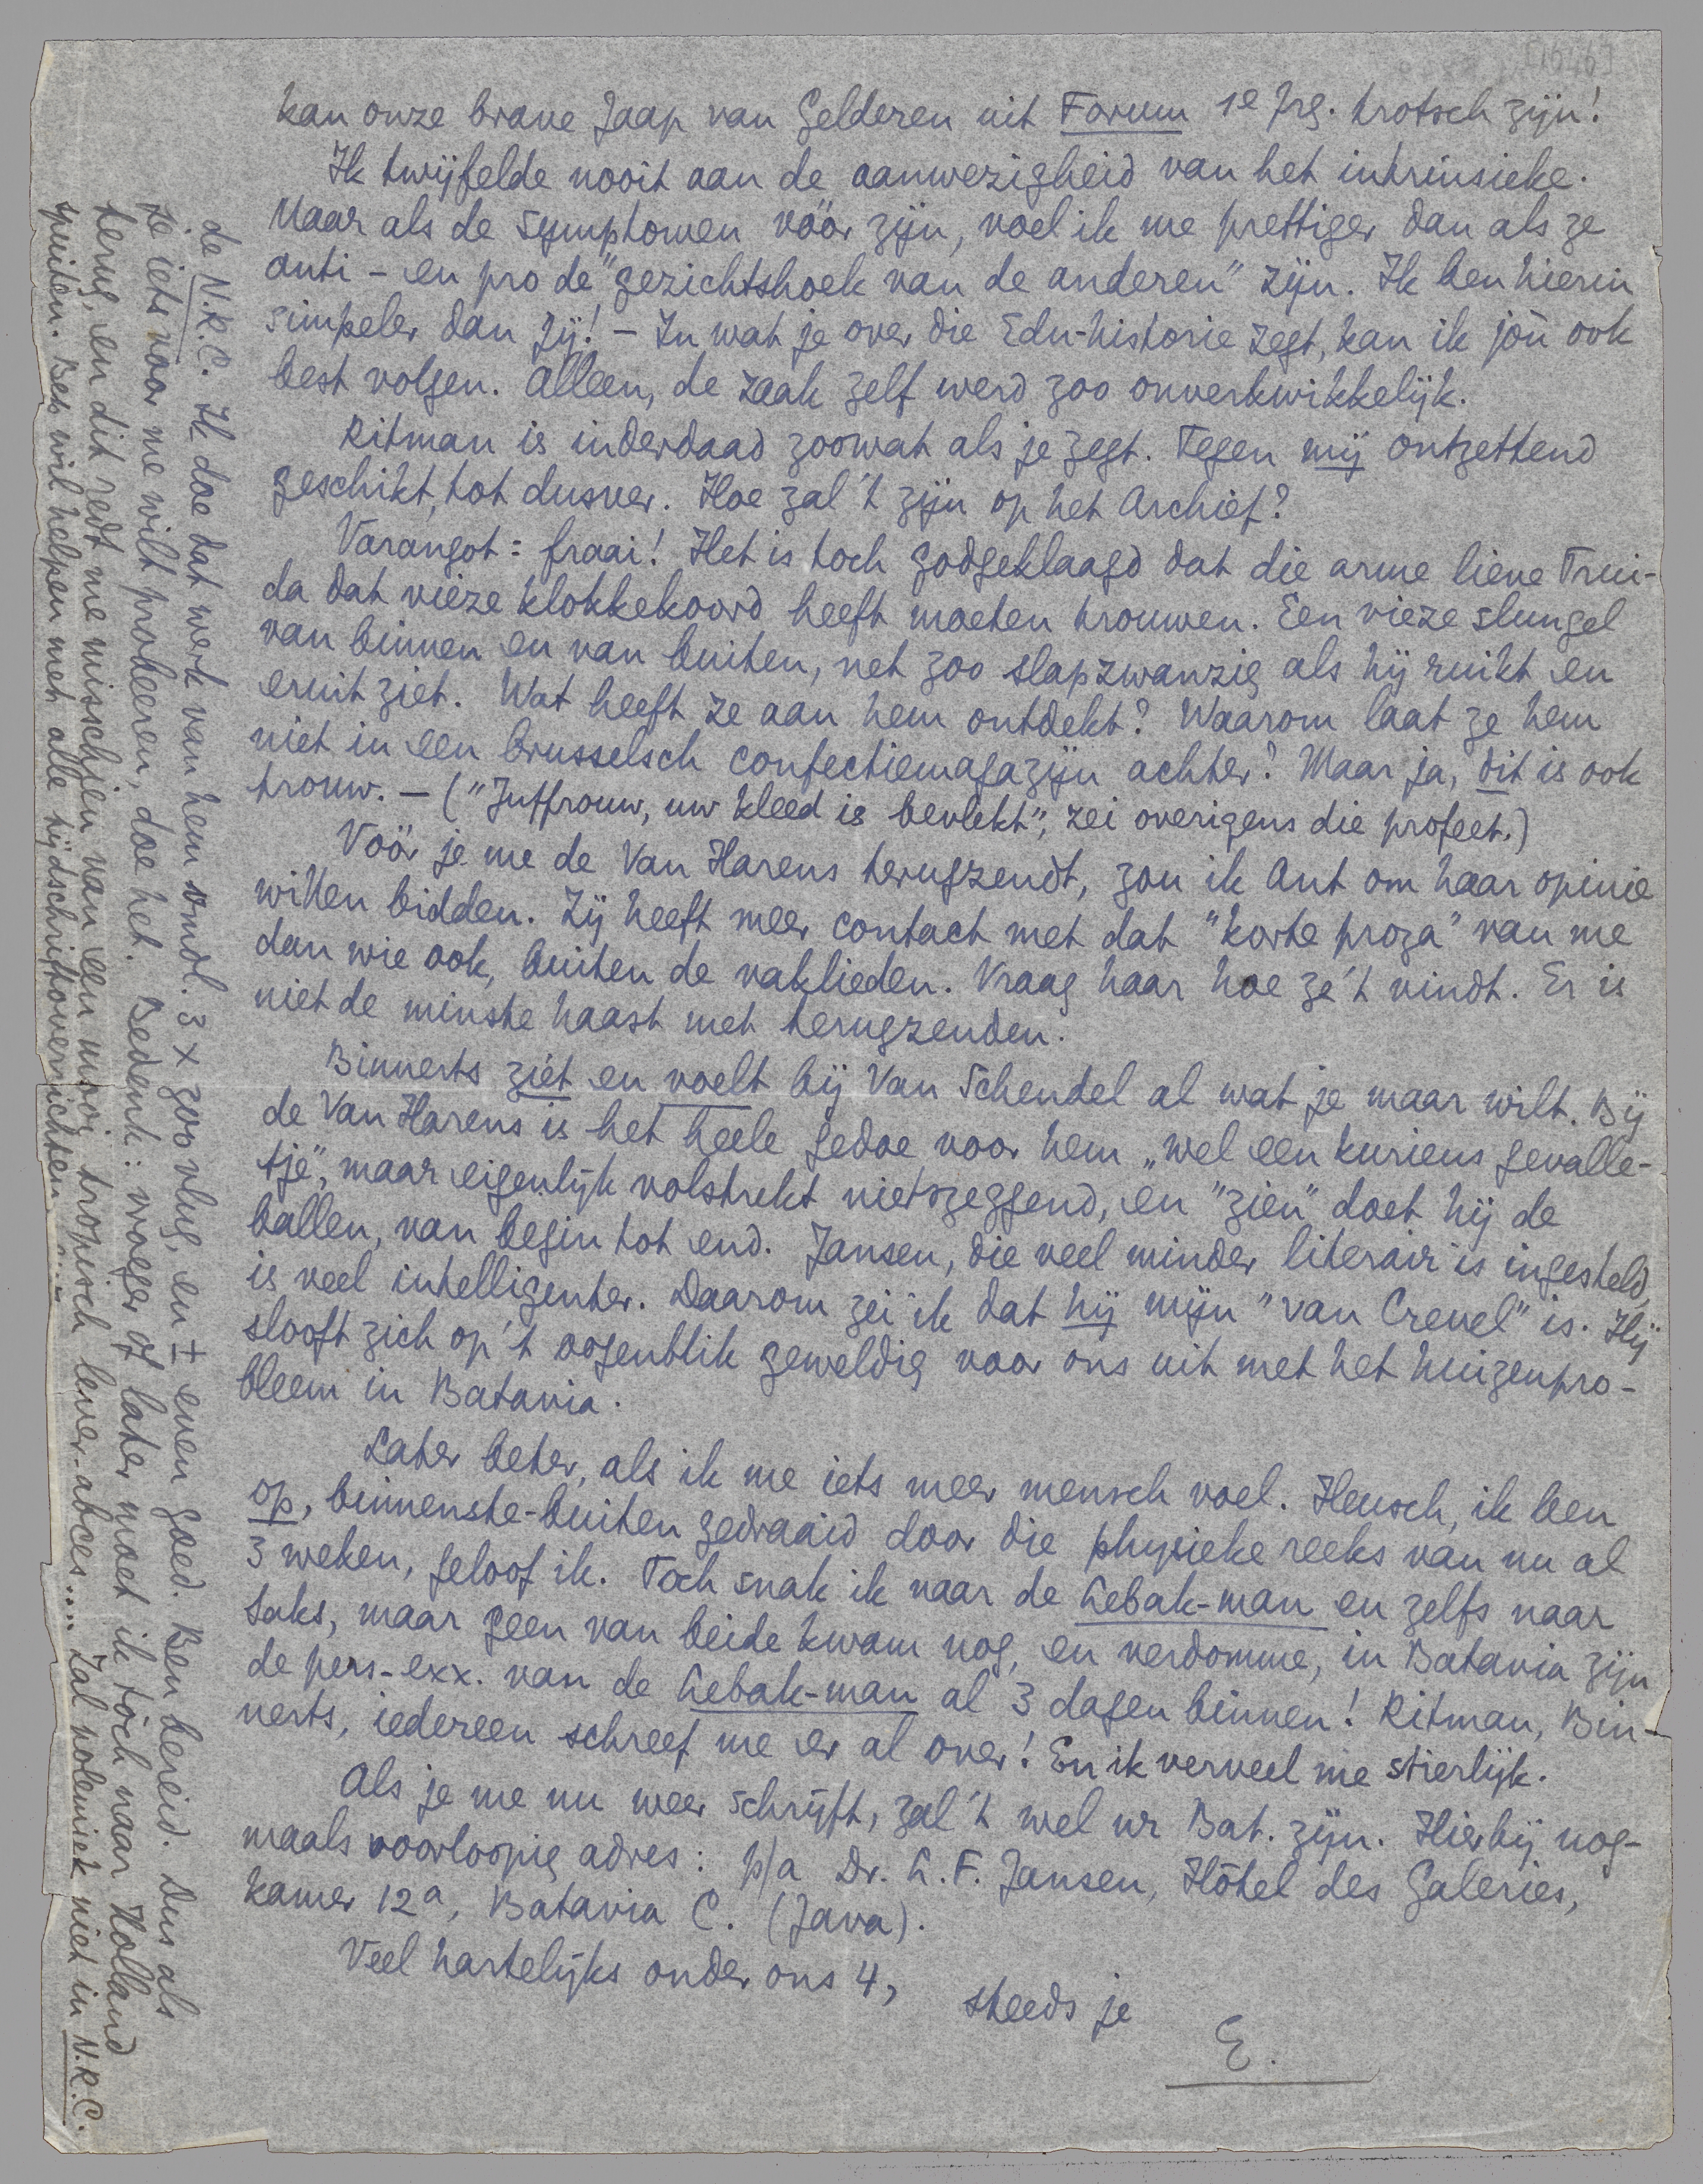 [1646]
kan onze brave Jaap van Gelderen uit Forum 1e jrg. trotsch zijn!
Ik twijfelde nooit aan de aanwezigheid van het intrinsieke.
Maar als de symptomen vóór zijn, voel ik me prettiger dan als ze
anti - en pro de "gezichtshoek van de anderen" zijn. Ik ben hierin
simpeler dan jij! - In wat je over die Edu-historie zegt, kan ik jou ook
best volgen. Alleen, de zaak zelf werd zoo onverkwikkelijk.
Ritman is inderdaad zoowat als je zegt. Tegen mij ontzettend
geschikt, tot dusver. Hoe zal 't zijn op het Archief?
Varangot = fraai! Het is toch godgeklaagd dat die arme lieve Trui-
da dat vieze klokkekoord heeft moeten trouwen. Een vieze slungel
van binnen en van buiten, net zoo slapzwanzig als hij ruikt en
eruit ziet. Wat heeft ze aan hem ontdekt? Waarom laat ze hem
niet in een brusselsch confectiemagazijn achter? Maar ja, dit is ook
trouw. - ("Juffrouw, uw kleed is bevlekt", zei overigens die profeet.)
Vóór je me de Van Harens terugzendt, zou ik Ant om haar opinie
willen bidden. Zij heeft meer contact met dat "korte proza" van me
dan wie ook, buiten de vaklieden. Vraag haar hoe ze 't vindt. Er is
niet de minste haast met terugzenden.
Binnerts ziét en voelt bij Van Schendel al wat je maar wilt. Bij
de Van Harens is het heele gedoe voor hem „wel een kurieus gevalle-
tje", maar eigenlijk volstrekt nietszeggend, en "zien" doet hij de
ballen, van begin tot end. Jansen, die veel minder literair is ingesteld,
is veel intelligenter. Daarom zei ik dat hij mijn "van Crevel" is. Hij
slooft zich op 't oogenblik geweldig voor ons uit met het huizenpro-
bleem in Batavia.
Later beter, als ik me iets meer mensch voel. Heusch, ik ben
op, binnenste-buiten gedraaid door die physieke reeks van nu al
3 weken, geloof ik. Toch snak ik naar de Lebak-man en zelfs naar
Saks, maar geen van beide kwam nog, en verdomme, in Batavia zijn
de pers-exx. van de Lebak-man al 3 dagen binnen! Ritman, Bin-
nerts, iedereen schreef me er al over! En ik verveel me stierlijk.
Als je me nu weer schrijft, zal 't wel nr Bat. zijn. Hierbij nog-
maals voorloopig adres: p/a Dr. L. F. Jansen, Hôtel des Galeries,
kamer 12a, Batavia C. (Java).
Veel hartelijks onder ons 4,
steeds je
E.
de N.R.C. Ik doe dat werk van hem omdl. 3 x zoo vlug, en ± even goed. Ben bereid. Dus als
je iets voor me wilt probeeren, doe het. Bedenk: vroeger of later moet ik tóch naar Holland
terug, en dit redt me misschien van een mooi tropisch lever-abces..... Zal polemiek niet in N.R.C.
spuiten. Beb wil helpen met alle tijdschriftoverzichten.....